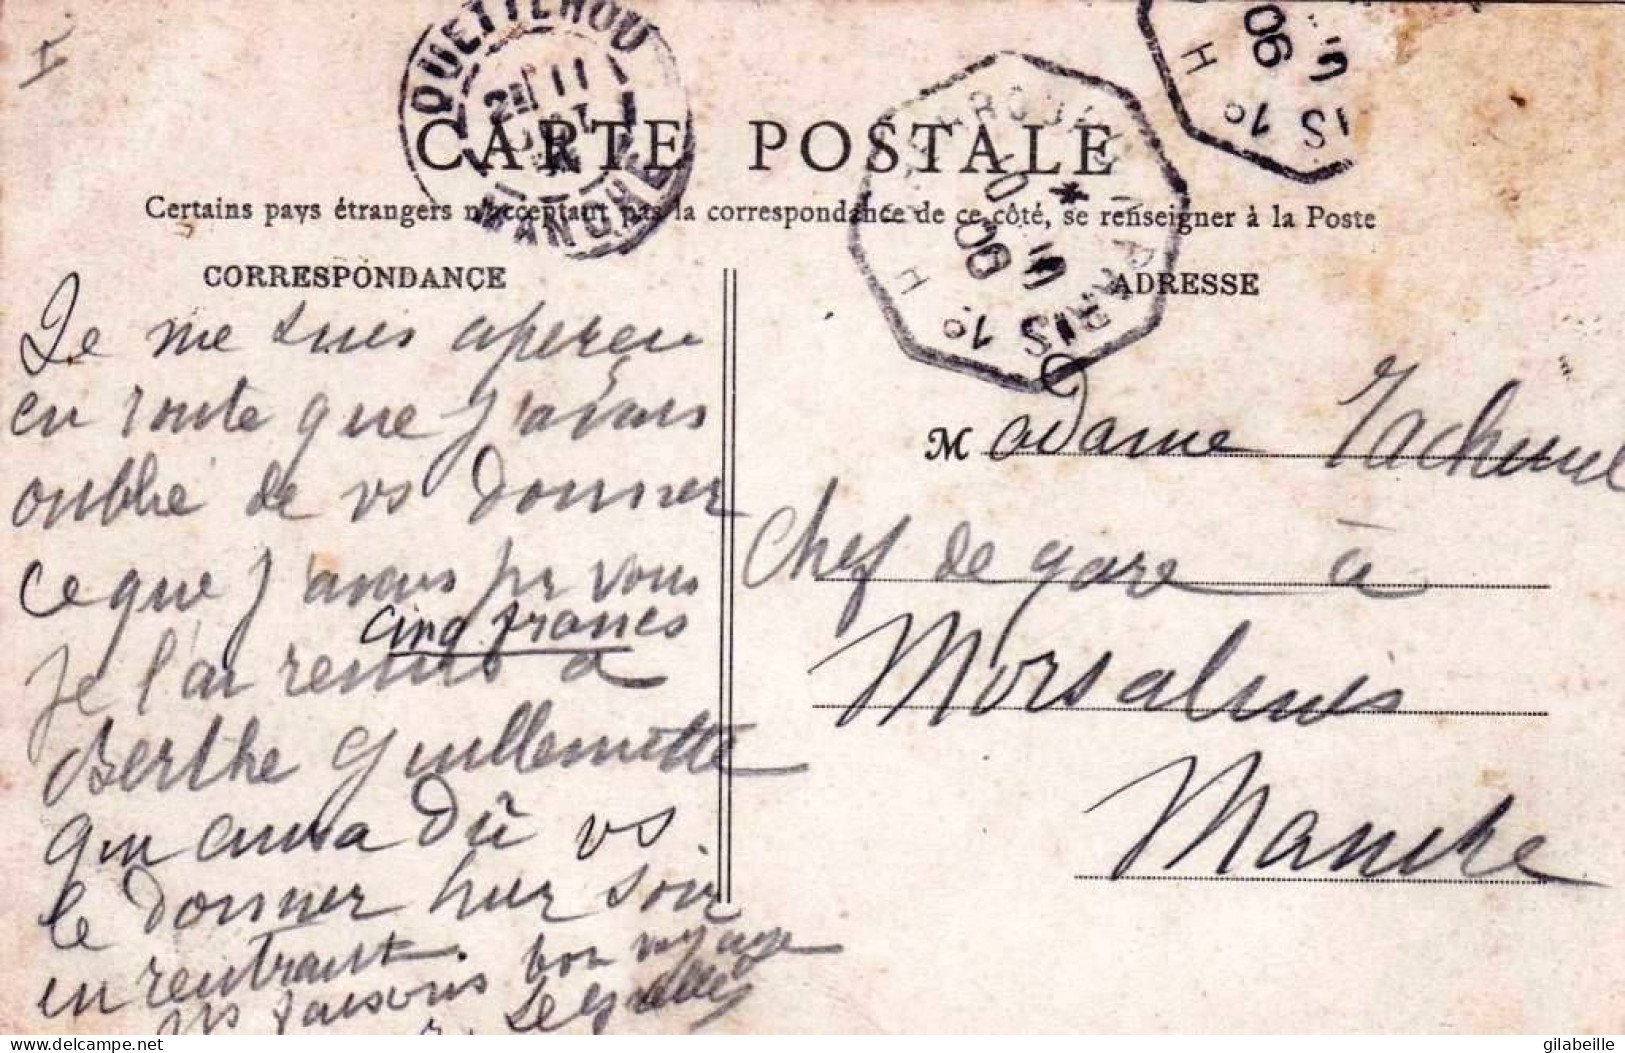 QUETTEHOU
MANCHE
CARTE POSTALE
Certains pays étrangers n'acceptant pas la correspondance de ce côté, se renseigner à la Poste
CORRESPONDANCE
Je me suis aperçu
en route que j'avais
oublié de vs donner
ce que j'avais pr vous
cinq francs
je l'ai remis à
Berthe Guillemette
qui aura dû vs
le donner hier soir
en rentrant.
ns faisons bon voyage
ADRESSE
Madame
Chef de gare à
Morsalines
Manche
PARIS 1º
H
06
IS 1º
H
06
delcampe.net
gilabeille